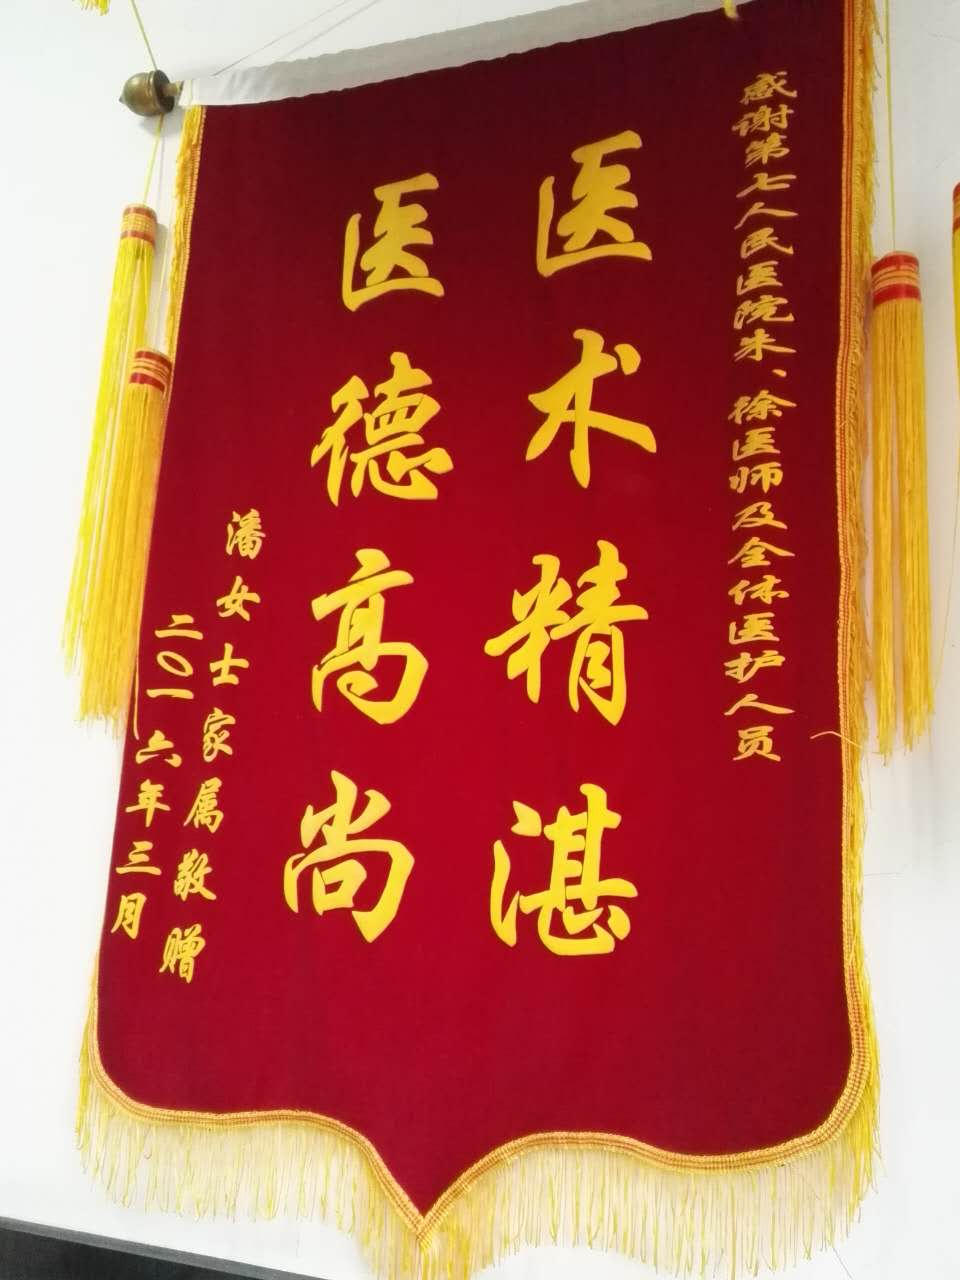 感谢第七人民医院朱、徐医师及全体医护人员
医术精湛
医德高尚
潘女士家属敬赠
二〇一六年三月